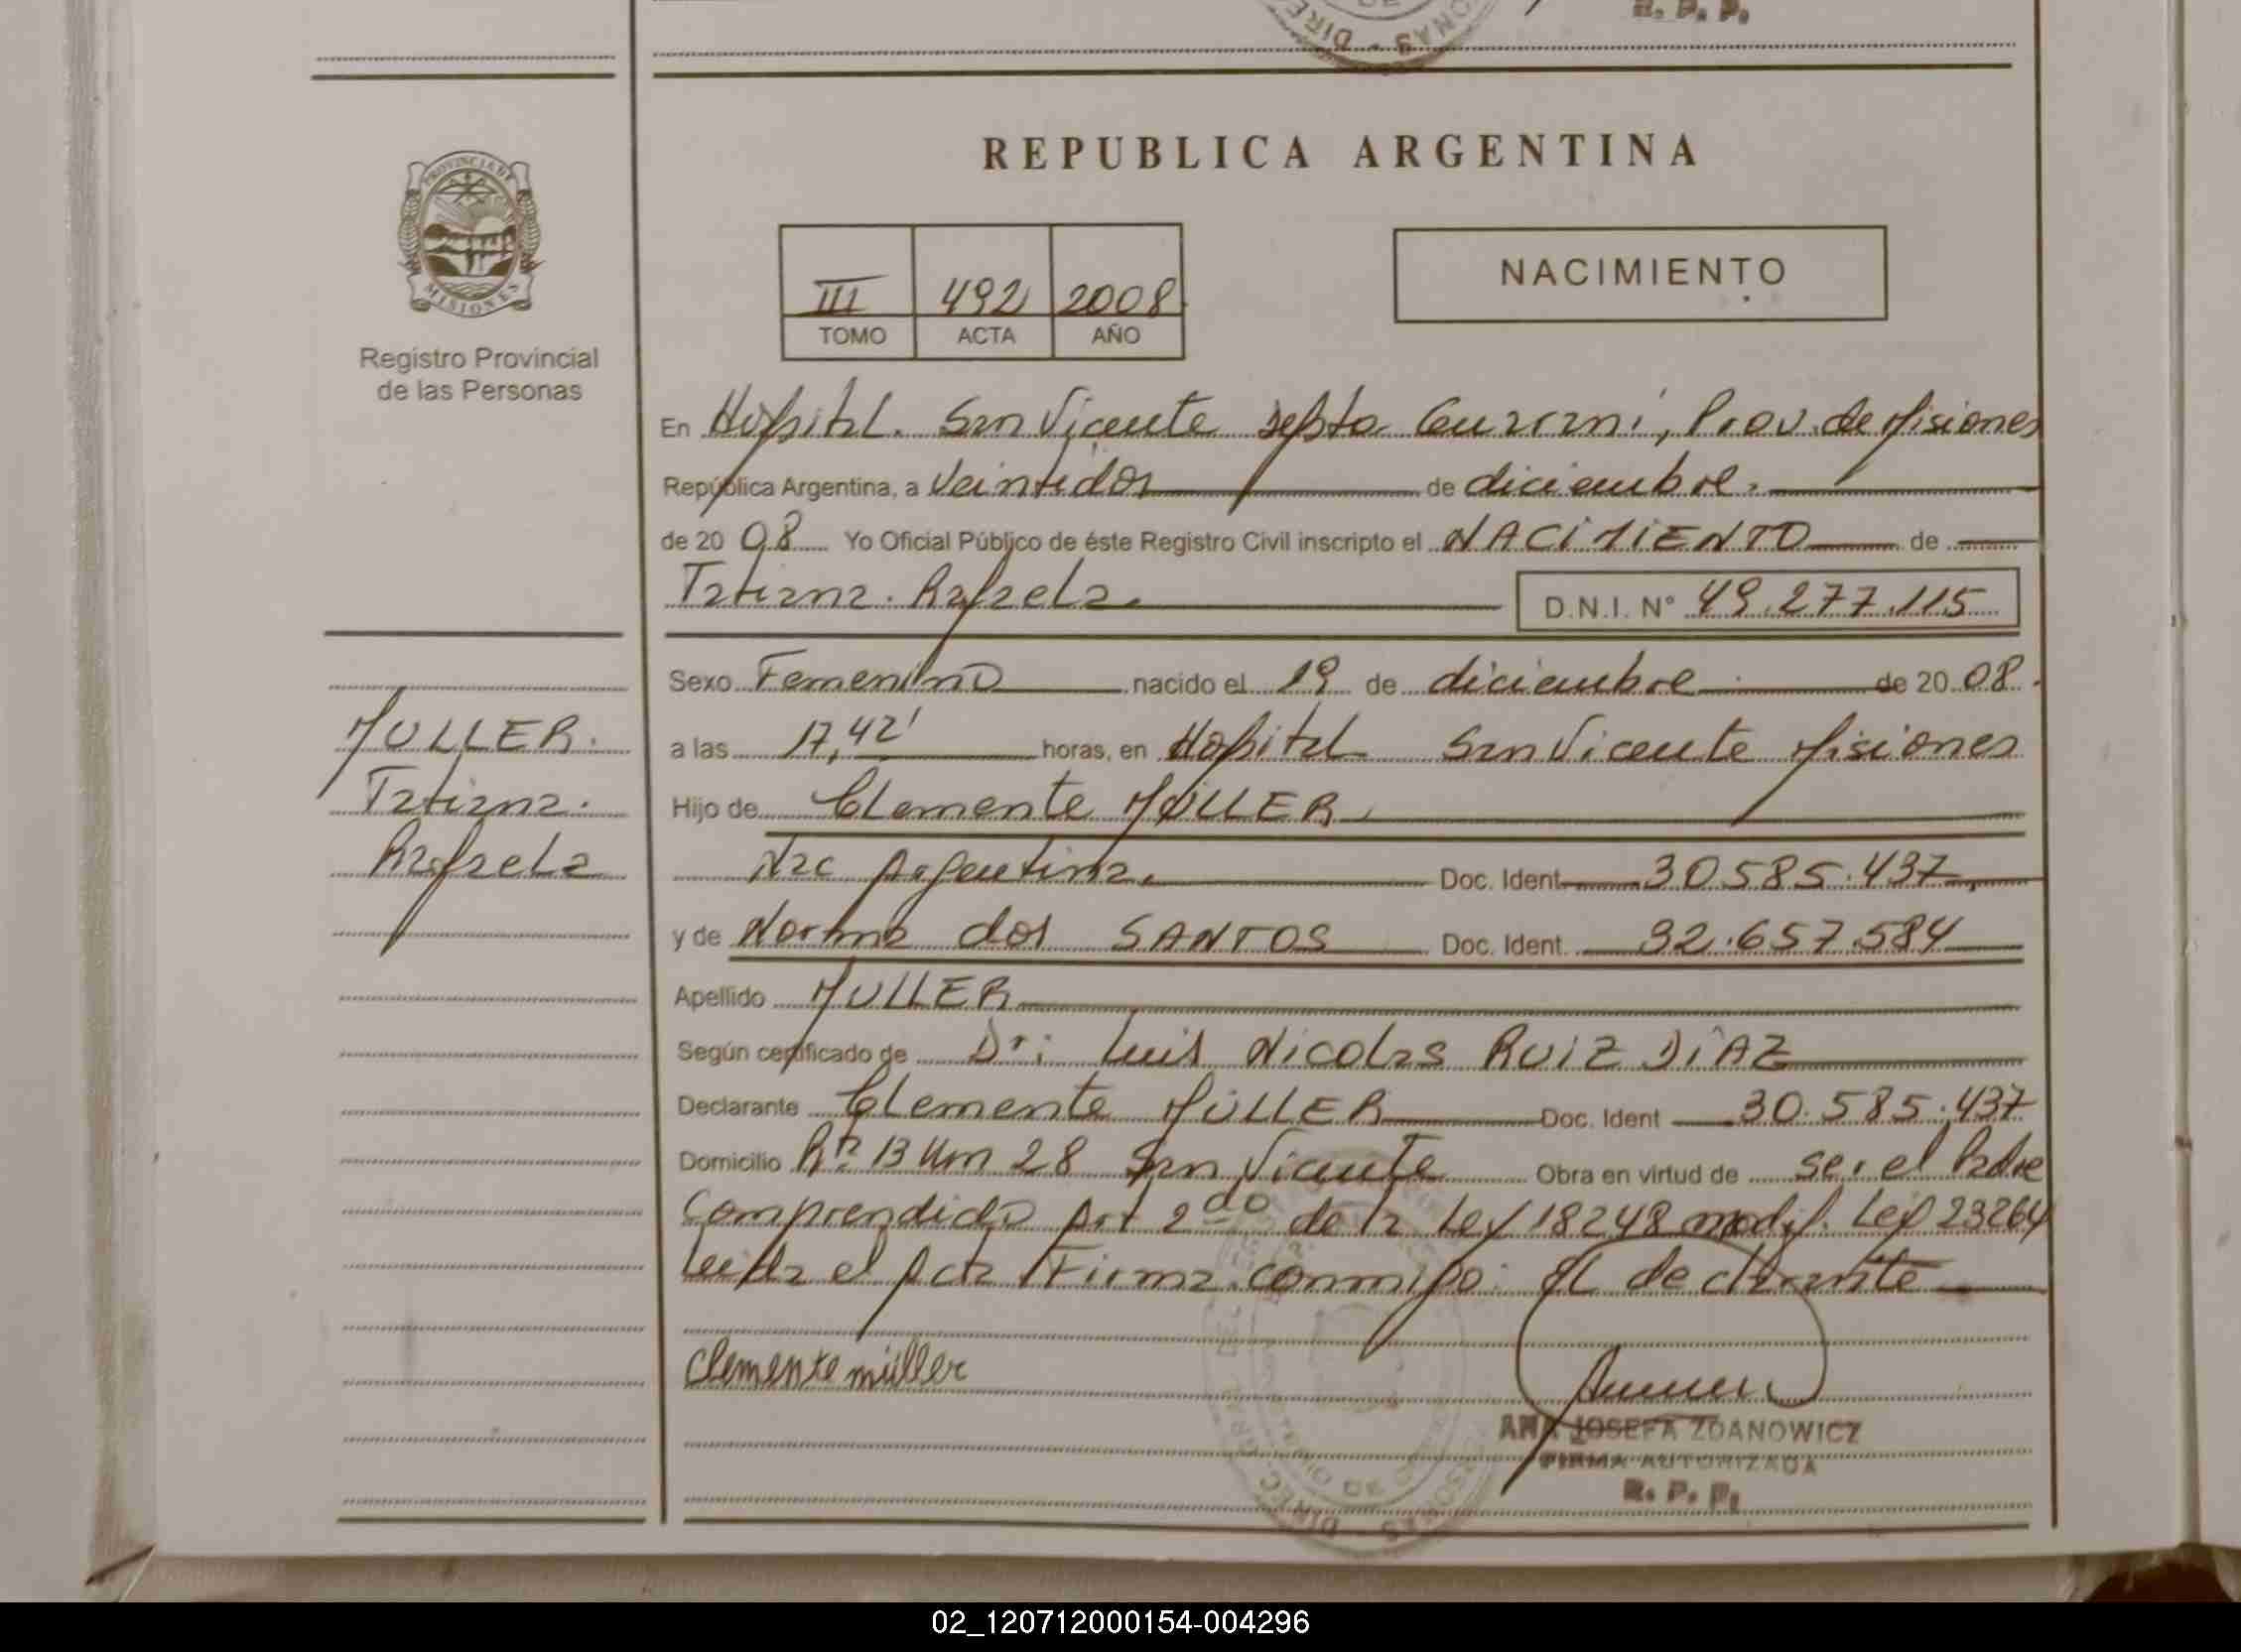 R. P. P.
REPUBLICA ARGENTINA
PROVINCIA DE
MISIONES
Registro Provincial
de las Personas
III 492 2008
TOMO ACTA AÑO
NACIMIENTO
En Hospital. San Vicente Depto Guarani, Prov. de Misiones
República Argentina, a Veintidos de diciembre.
de 20 08 Yo Oficial Público de éste Registro Civil inscripto el NACIMIENTO de
Tatiana. Rafaela. D.N.I. N° 49.277.115
Sexo Femenino nacido el 19 de diciembre de 20 08.
MULLER. a las 17,42' horas, en Hospital San Vicente Misiones
Tatiana. Hijo de Clemente MÜLLER
Rafaela Nac Argentina. Doc. Ident 30.585.437
y de Norma dos SANTOS Doc. Ident. 32.657.584
Apellido MULLER
Según certificado de Dr: Luis Nicolas RUIZ DIAZ
Declarante Clemente MÜLLER Doc. Ident 30.585.437
Domicilio Rta 13 Km 28 San Vicente Obra en virtud de ser el Padre
Comprendido Art 2do de la Ley 18248 modif. Ley 23264
Leida el Acta Firma conmigo: El declarante
Clemente müller
ANA JOSEFA ZDANOWICZ
FIRMA AUTORIZADA
R. P. P.
02_120712000154-004296